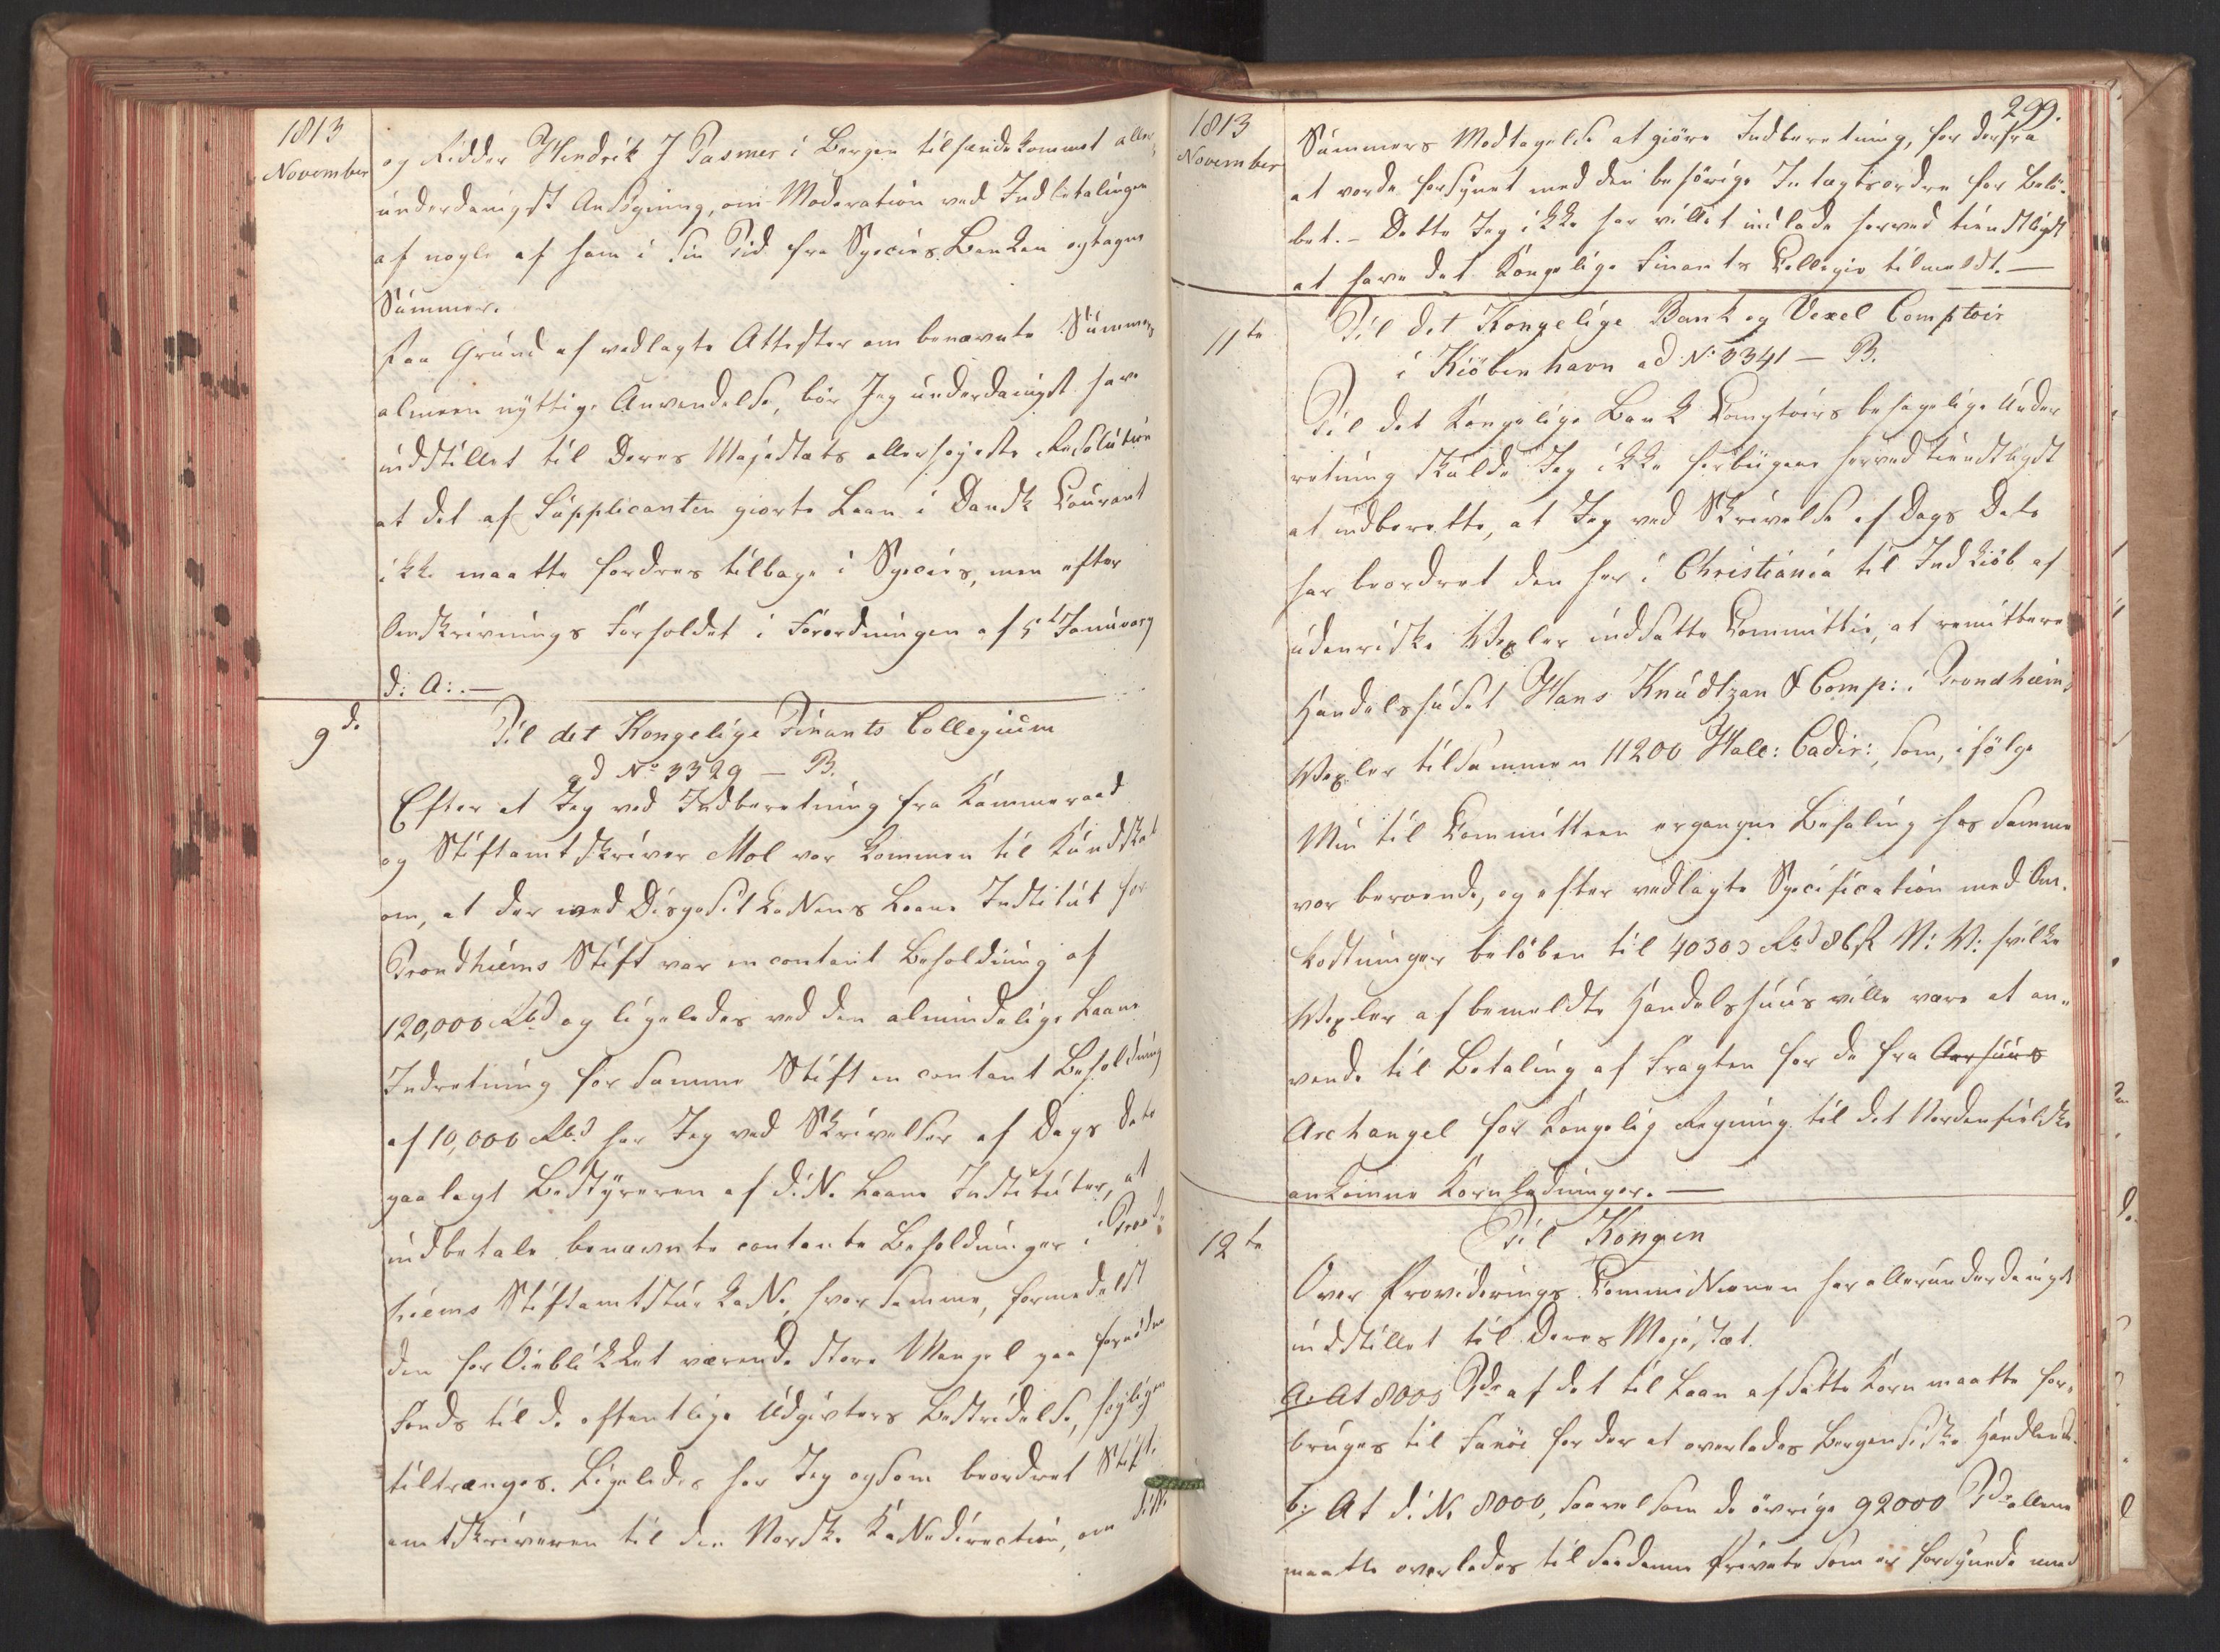 1813
November
og Ridder Hendrik J Fasmer i Bergen tilhændekommet aller„
underdanigst Ansögning, om Moderation ved Indbetalingen
af nogle af ham i sin Tid fra Species Banken optagne
Summer.
Paa Grund af vedlagte Attester om benævnte Summers
almeen nyttige Anvendelse, bör Jeg underdanigst have
indstillet til Deres Majestæts allerhöjeste Resolution
at det af Supplicanten giorte Laan i Dansk Courant
ikke maatte fordres tilbage i Species, men efter
Omskrivnings Forholdet i Forordningen af 5t Januarij
d: A:. —
9de
Til det Kongelige Finants Collegium
ad No 3329 — B.
Efter at Jeg ved Indberetning fra Kammeraad
og Stiftamtskriver Mol var kommen til Kundskab
om, at der ved Disposit Kassens Laane Institut for
Trondhiems Stift var en contant Beholdning af
120,000 Rbd og ligeledes ved den almindelige Laane
Indretning for samme Stift en contant Beholdning
af 10,000 Rbd har Jeg ved Skrivelser af Dags Dato
paalagt Bestÿreren af d: N: Laane Instituter, at
indbetale benævnte contante Beholdninger i Trond„
hiems Stiftamtstue Kasse, hvor samme, formedelst
den for Öieblikket værende store Mangel paa fornödne
Fonds til de offentlige Udgivters Bestridelse, höÿligen
tiltrænges. Ligeledes har Jeg ogsom beordret Stift„
amtskriveren til den Norske Kassedirection, om disse
1813
November
299.
Summers Modtagelse at giöre Indberetning, for derfra
at vorde forsÿnet med den behörige Indtægtsordre for Belö„
bet. — Dette Jeg ikke har villet undlade herved tienstligst
at have det Kongelige Finants Collegio tilmeldt. —
11te
Til det Kongelige Bank og Vexel Comptoir
i Kiöbenhavn ad No 3341 — B.
Til det Kongelige Bank Comptoirs behagelige Under
retning skulde Jeg ikke forbigaae herved tienstligst
at indberette, at Jeg ved Skrivelse af Dags Dato
har beordret den her i Christiania til Indkiöb af
udenriske Vexler indsatte Committee, at remittere
Handelshuset Hans Knudtzon & Comp: i Trondhiem,
Vexler tilsammen 11200 Holl: Cadir:, som, ifölge
Min til Committeen ergangne Befaling hos samme
var beroende, og efter vedlagte Specification med Om„
kostninger belöben til 40303 Rbd 86 s N: V: hvilke
Vexler af bemeldte Handelshuus ville være at an„
vende til Betaling af Fragten for de fra Aarhuus
Archangel for Kongelig Regning til det Nordenfieldske
ankomne Kornladninger. —
12te
Til Kongen
Over Providerings Commissionen har allerunderdanigst
indstillet til Deres Majestæt.
a: At 8000 Tdr af det til Laan afsatte Korn maatte for„
bruges til Fanöe for der at overlades Bergensiske Handlende.
b: At d: N: 8000, saavelsom de övrige 92000 Tdr allene
maatte overlades til saadanne Private som er forsÿnede med